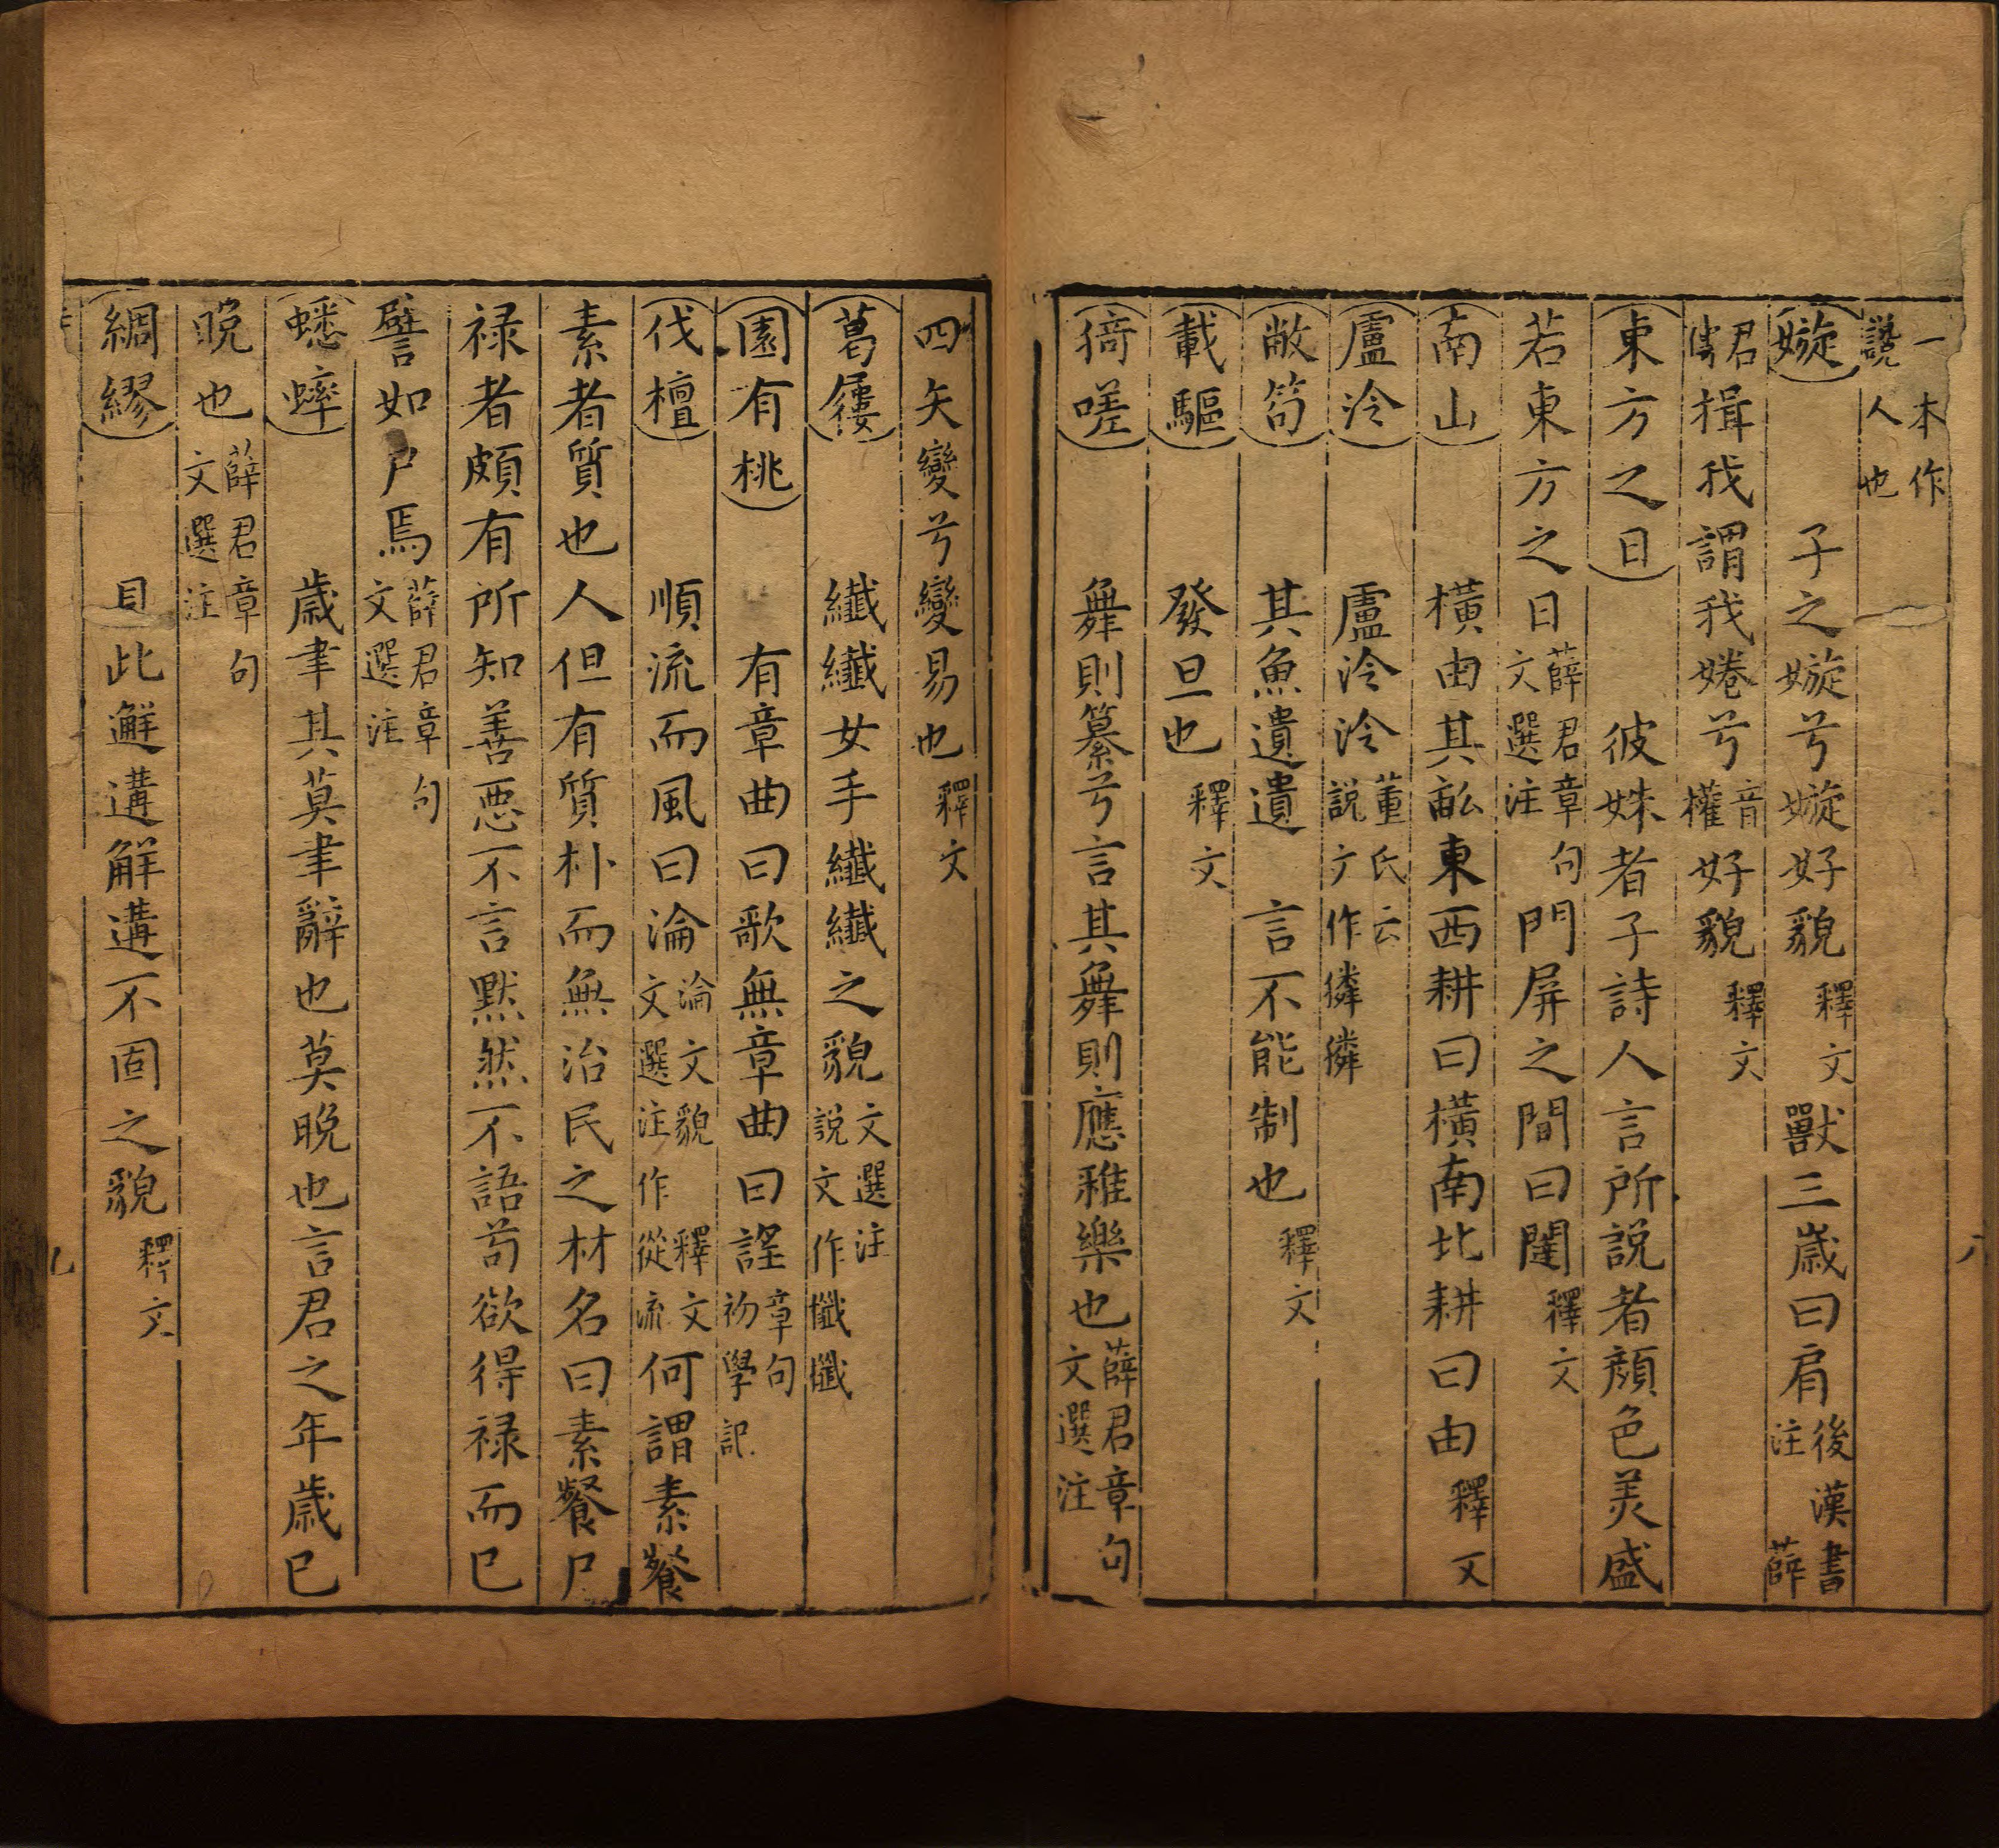 一本作說人也
嫙　子之嫙兮嫙好貌釋文獸三歲曰肩後漢書注薛
君傳揖我謂我婘兮音權好貌釋文
東方之日　彼姝者子詩人言所說者顏色美盛
若東方之日薛君章句文選注門屏之間曰闥釋文
南山　橫由其畝東西耕曰橫南北耕曰由釋文
盧泠　盧泠泠董氏云說文作獜獜
敝笱　其魚遺遺　言不能制也釋文
載驅　發旦也釋文
猗嗟　舞則纂兮言其舞則應雅樂也薛君章句文選注
四矢變兮變易也釋文
葛屨　纖纖女手纖纖之貌文選注說文作攕攕
園有桃　有章曲曰歌無章曲曰謠章句初學記
伐檀　順流而風曰淪淪文貌文選注作釋文從流何謂素餐
素者質也人但有質朴而無治民之材名曰素餐尸
祿者頗有所知善惡不言默然不語苟欲得祿而已
譬如尸焉薛君章句文選注
蟋蟀　歲聿其莫聿辭也莫晚也言君之年歲已
晚也薛君章句文選注
綢繆　見此邂遘解遘不固之貌釋文
九